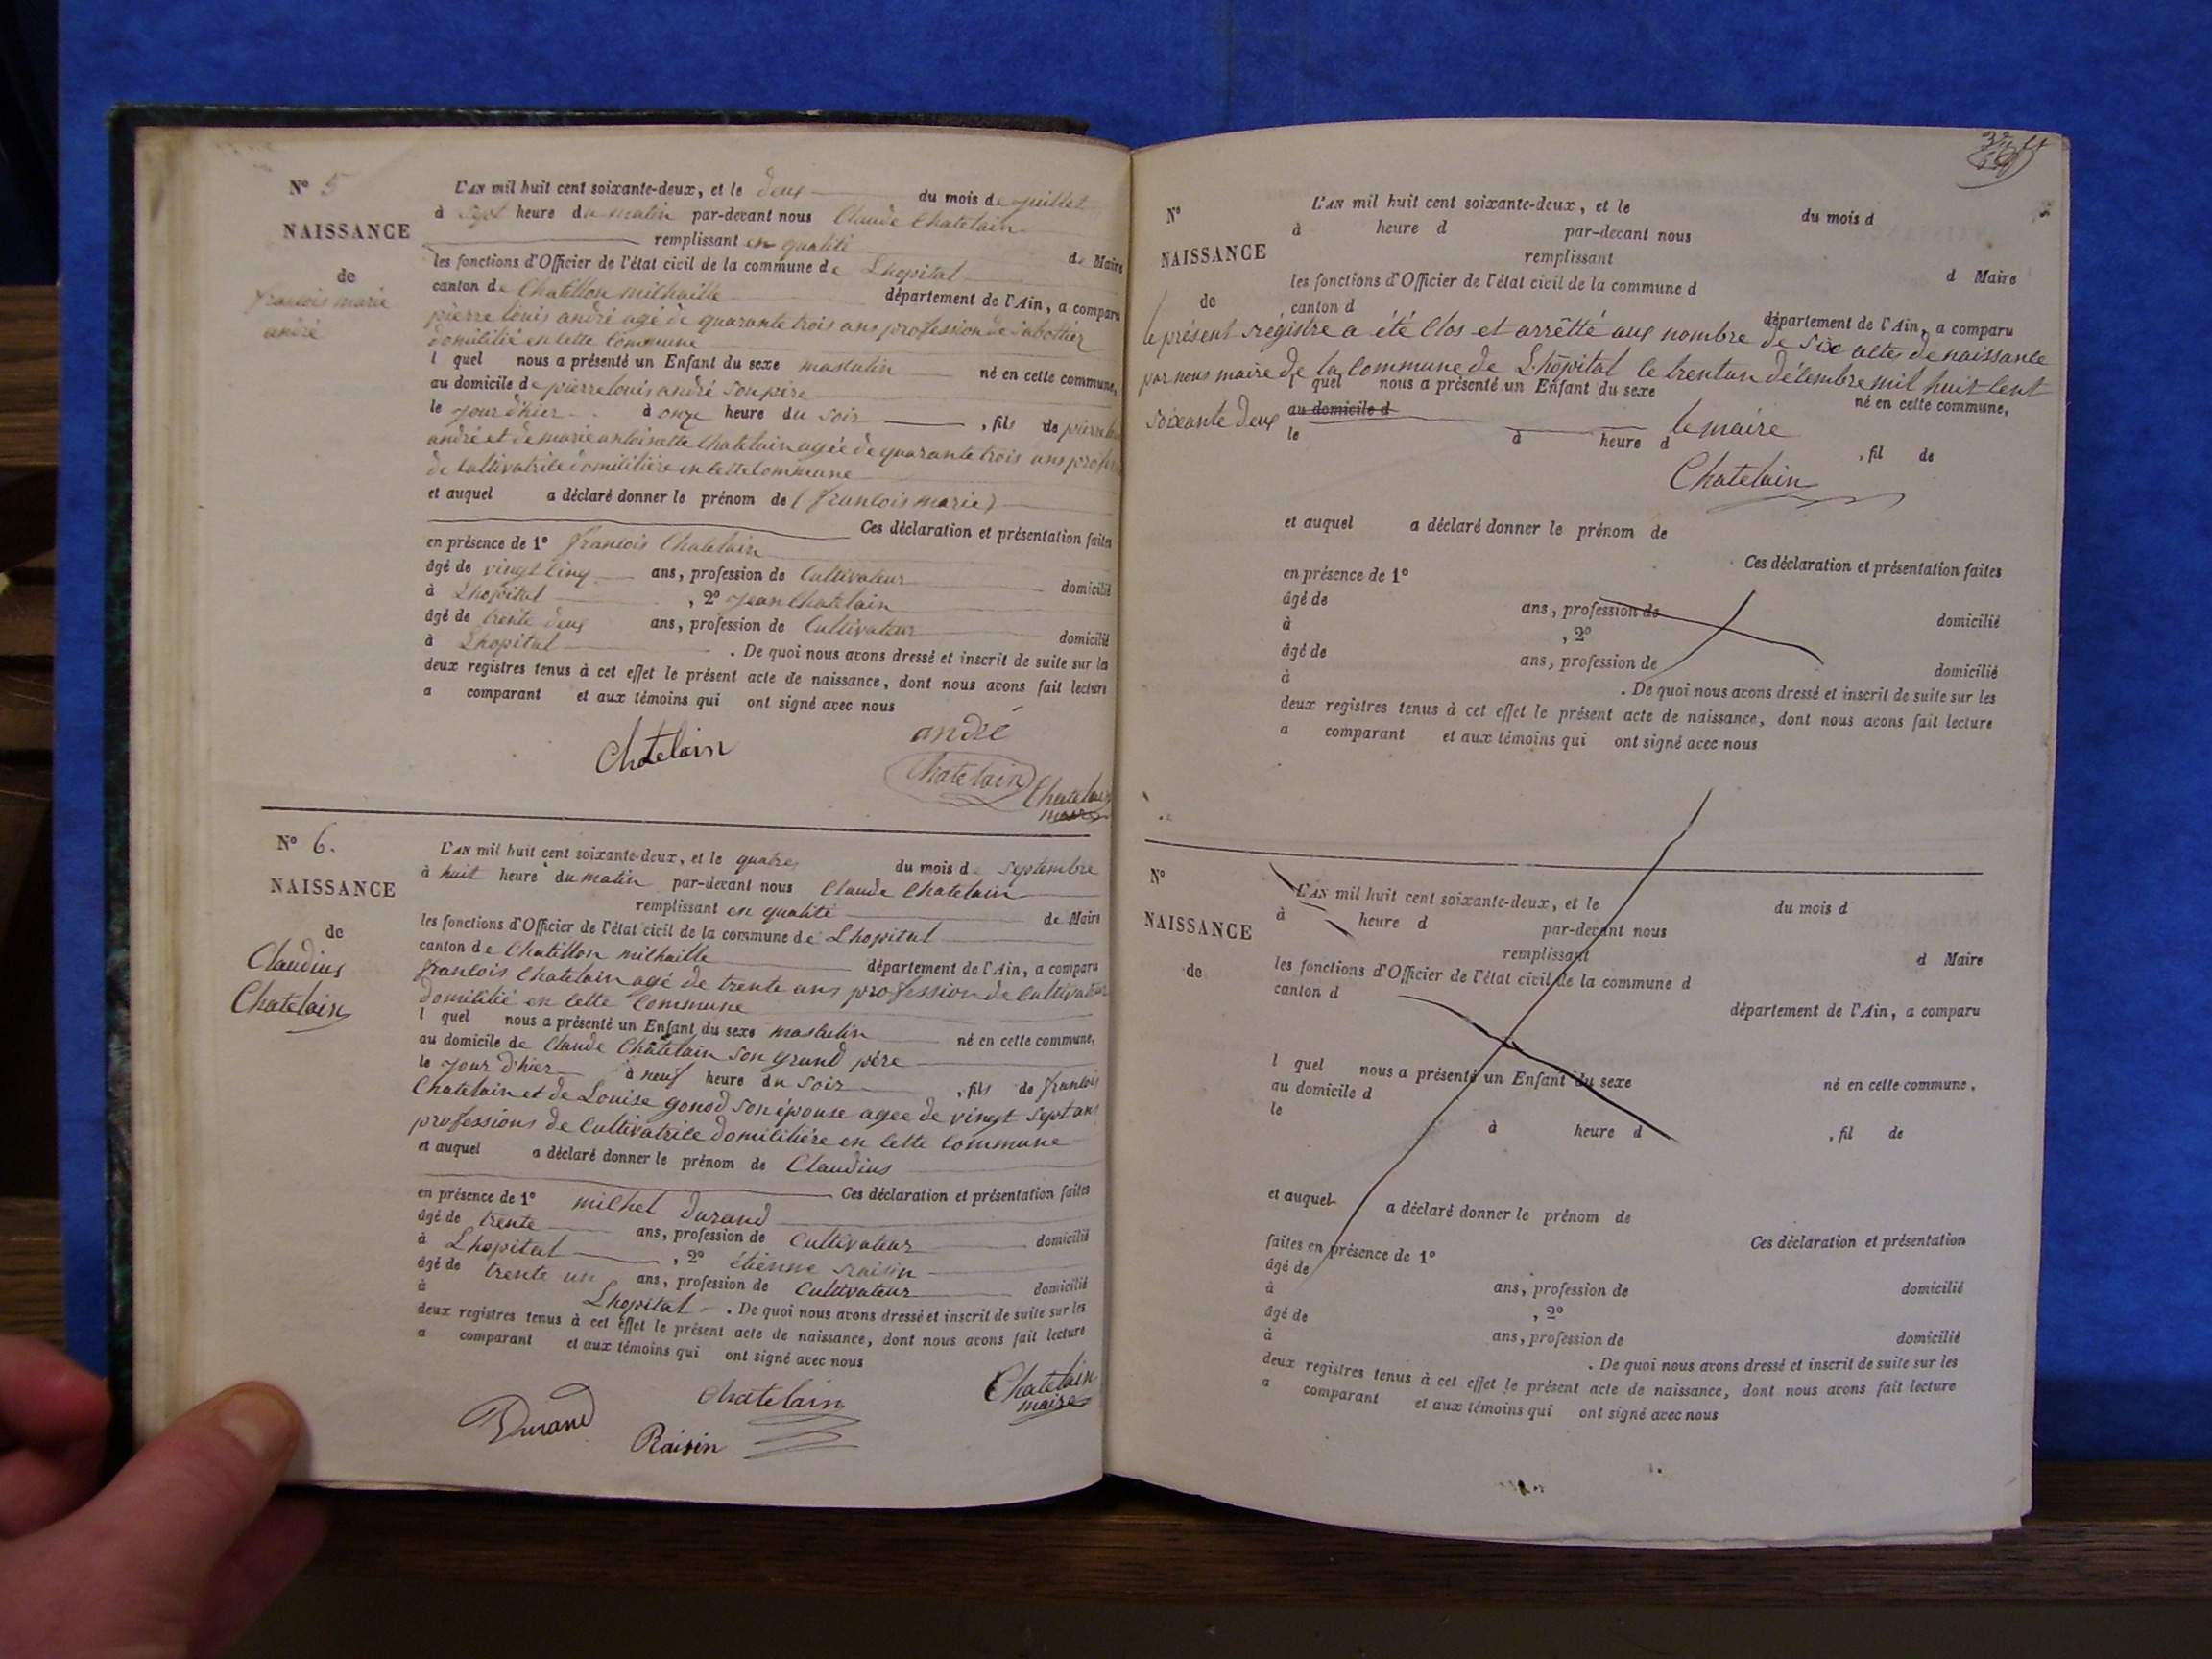 N° 5
NAISSANCE
de
francois marie
andré
L'AN mil huit cent soixante-deux, et le deux du mois de juillet
à sept heure du matin par-devant nous Claude Chatelain
remplissant en qualité de Maire
les fonctions d'Officier de l'état civil de la commune de Lhopital
canton de Chatillon michaille département de l'Ain, a comparu
pierre louis andré agé de quarante trois ans profession de sabottier
domicilié en cette commune
l quel nous a présenté un Enfant du sexe masculin né en cette commune,
au domicile de pierre louis andré son père
le jour d'hier à onze heure du soir , fils de pierre louis
andré et de marie antoinette Chatelain agée de quarante trois ans profession
de Cultivatrice domicilière en cette commune
et auquel a déclaré donner le prénom de (francois marie)
Ces déclaration et présentation faites
en présence de 1° francois Chatelain
âgé de vingt cinq ans, profession de Cultivateur domicilié
à Lhopital , 2° jean Chatelain
âgé de trente deux ans, profession de Cultivateur domicilié
à Lhopital . De quoi nous avons dressé et inscrit de suite sur les
deux registres tenus à cet effet le présent acte de naissance, dont nous avons fait lecture
a comparant et aux témoins qui ont signé avec nous
Chatelain andré
Chatelain Chatelain
maire
N° 6.
NAISSANCE
de
Claudius
Chatelain
L'AN mil huit cent soixante-deux, et le quatre du mois de septembre
à huit heure du matin par-devant nous Claude Chatelain
remplissant en qualité de Maire
les fonctions d'Officier de l'état civil de la commune de Lhopital
canton de Chatillon michaille département de l'Ain, a comparu
francois Chatelain agé de trente ans profession de cultivateur
domicilié en cette commune
l quel nous a présenté un Enfant du sexe masculin né en cette commune,
au domicile de Claude Chatelain son grand père
le jour d'hier à neuf heure du soir , fils de francois
Chatelain et de Louise gonod son épouse agee de vingt sept ans
professions de Cultivatrice domicilière en cette commune
et auquel a déclaré donner le prénom de Claudius
Ces déclaration et présentation faites
en présence de 1° michel durand
âgé de trente ans, profession de Cultivateur domicilié
à Lhopital , 2° étienne raisin
âgé de trente un ans, profession de Cultivateur domicilié
à Lhopital . De quoi nous avons dressé et inscrit de suite sur les
deux registres tenus à cet effet le présent acte de naissance, dont nous avons fait lecture
a comparant et aux témoins qui ont signé avec nous
Durand Chatelain Chatelain
Raisin maire
N°
NAISSANCE
de
L'AN mil huit cent soixante-deux, et le du mois d
à heure d par-devant nous
remplissant d Maire
les fonctions d'Officier de l'état civil de la commune d
canton d département de l'Ain, a comparu
le présent régistre a été Clos et arrêtté aux nombre de six actes de naissance
par nous maire de la commune de L'hôpital le trentun décembre mil huit cent
l quel nous a présenté un Enfant du sexe né en cette commune,
soixante deux au domicile d le maire
le à heure d , fil de
Chatelain
et auquel a déclaré donner le prénom de
Ces déclaration et présentation faites
en présence de 1°
âgé de ans, profession de domicilié
à , 2°
âgé de ans, profession de domicilié
à . De quoi nous avons dressé et inscrit de suite sur les
deux registres tenus à cet effet le présent acte de naissance, dont nous avons fait lecture
a comparant et aux témoins qui ont signé avec nous
N°
NAISSANCE
de
L'AN mil huit cent soixante-deux, et le du mois d
à heure d par-devant nous
remplissant d Maire
les fonctions d'Officier de l'état civil de la commune d
canton d département de l'Ain, a comparu
l quel nous a présenté un Enfant du sexe né en cette commune,
au domicile d
le à heure d , fil de
et auquel a déclaré donner le prénom de
Ces déclaration et présentation
faites en présence de 1°
âgé de ans, profession de domicilié
à , 2°
âgé de ans, profession de domicilié
à . De quoi nous avons dressé et inscrit de suite sur les
deux registres tenus à cet effet le présent acte de naissance, dont nous avons fait lecture
a comparant et aux témoins qui ont signé avec nous